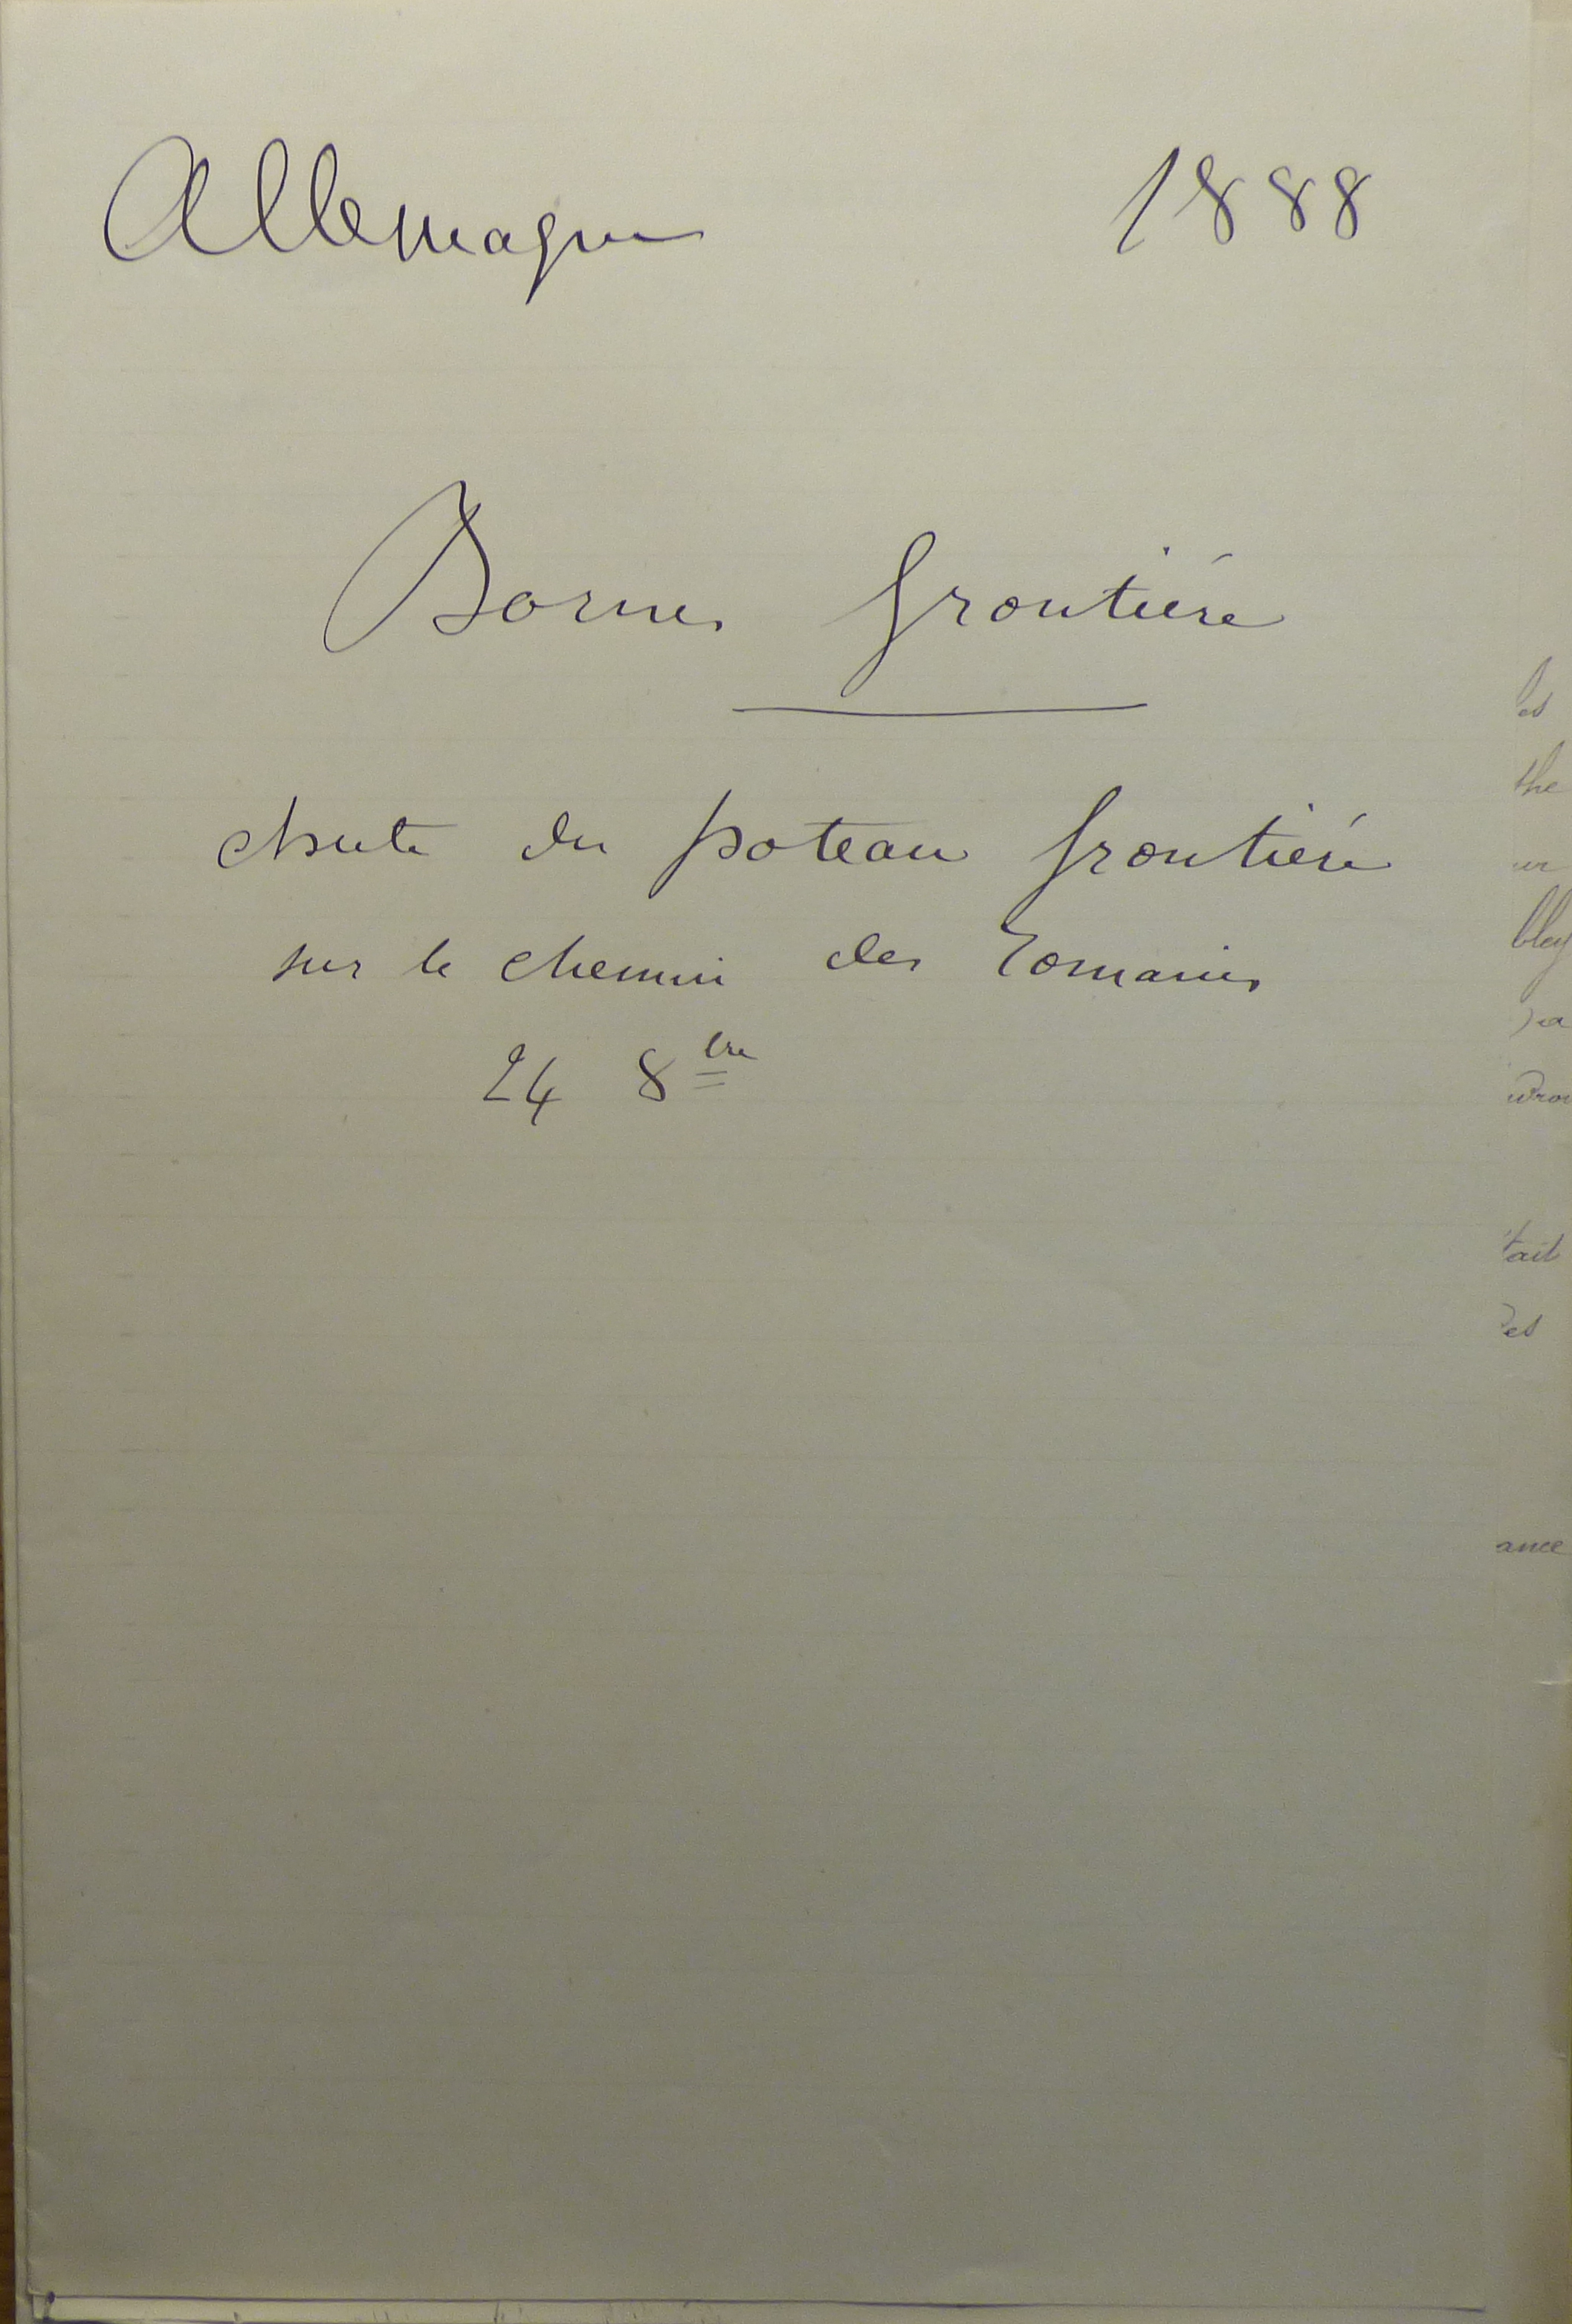 Allemagne 1888
Borne frontière
chute du poteau frontière
sur le chemin des Romains
24 8bre
les
the
ur
bley
wron
tait
des
ance